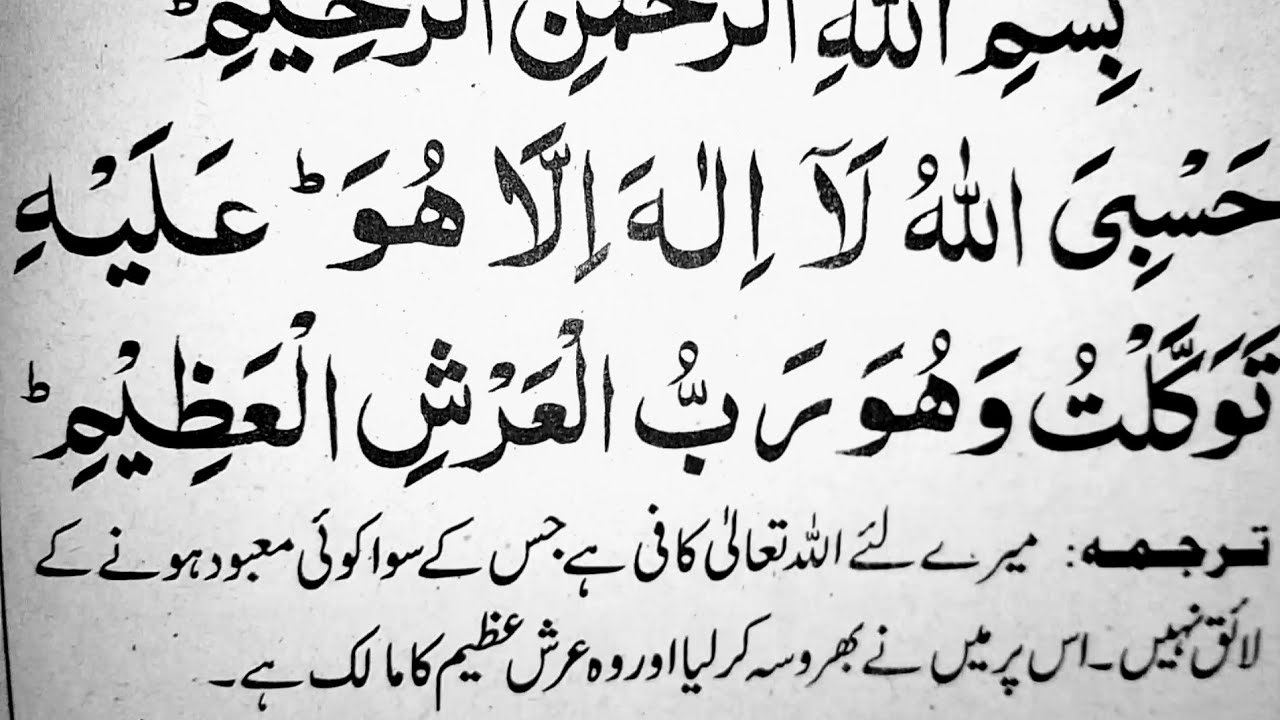 بِسْمِ اللّٰهِ الرَّحْمٰنِ الرَّحِيْمِ ؕ
حَسْبِیَ اللّٰهُ لَاۤ اِلٰهَ اِلَّا هُوَ ؕ عَلَیْهِ
تَوَكَّلْتُ وَهُوَ رَبُّ الْعَرْشِ الْعَظِیْمِ ؕ
ترجمہ: میرے لئے اللہ تعالیٰ کافی ہے جس کے سوا کوئی معبود ہونے کے
لائق نہیں۔ اس پر میں نے بھروسہ کر لیا اور وہ عرش عظیم کا مالک ہے۔